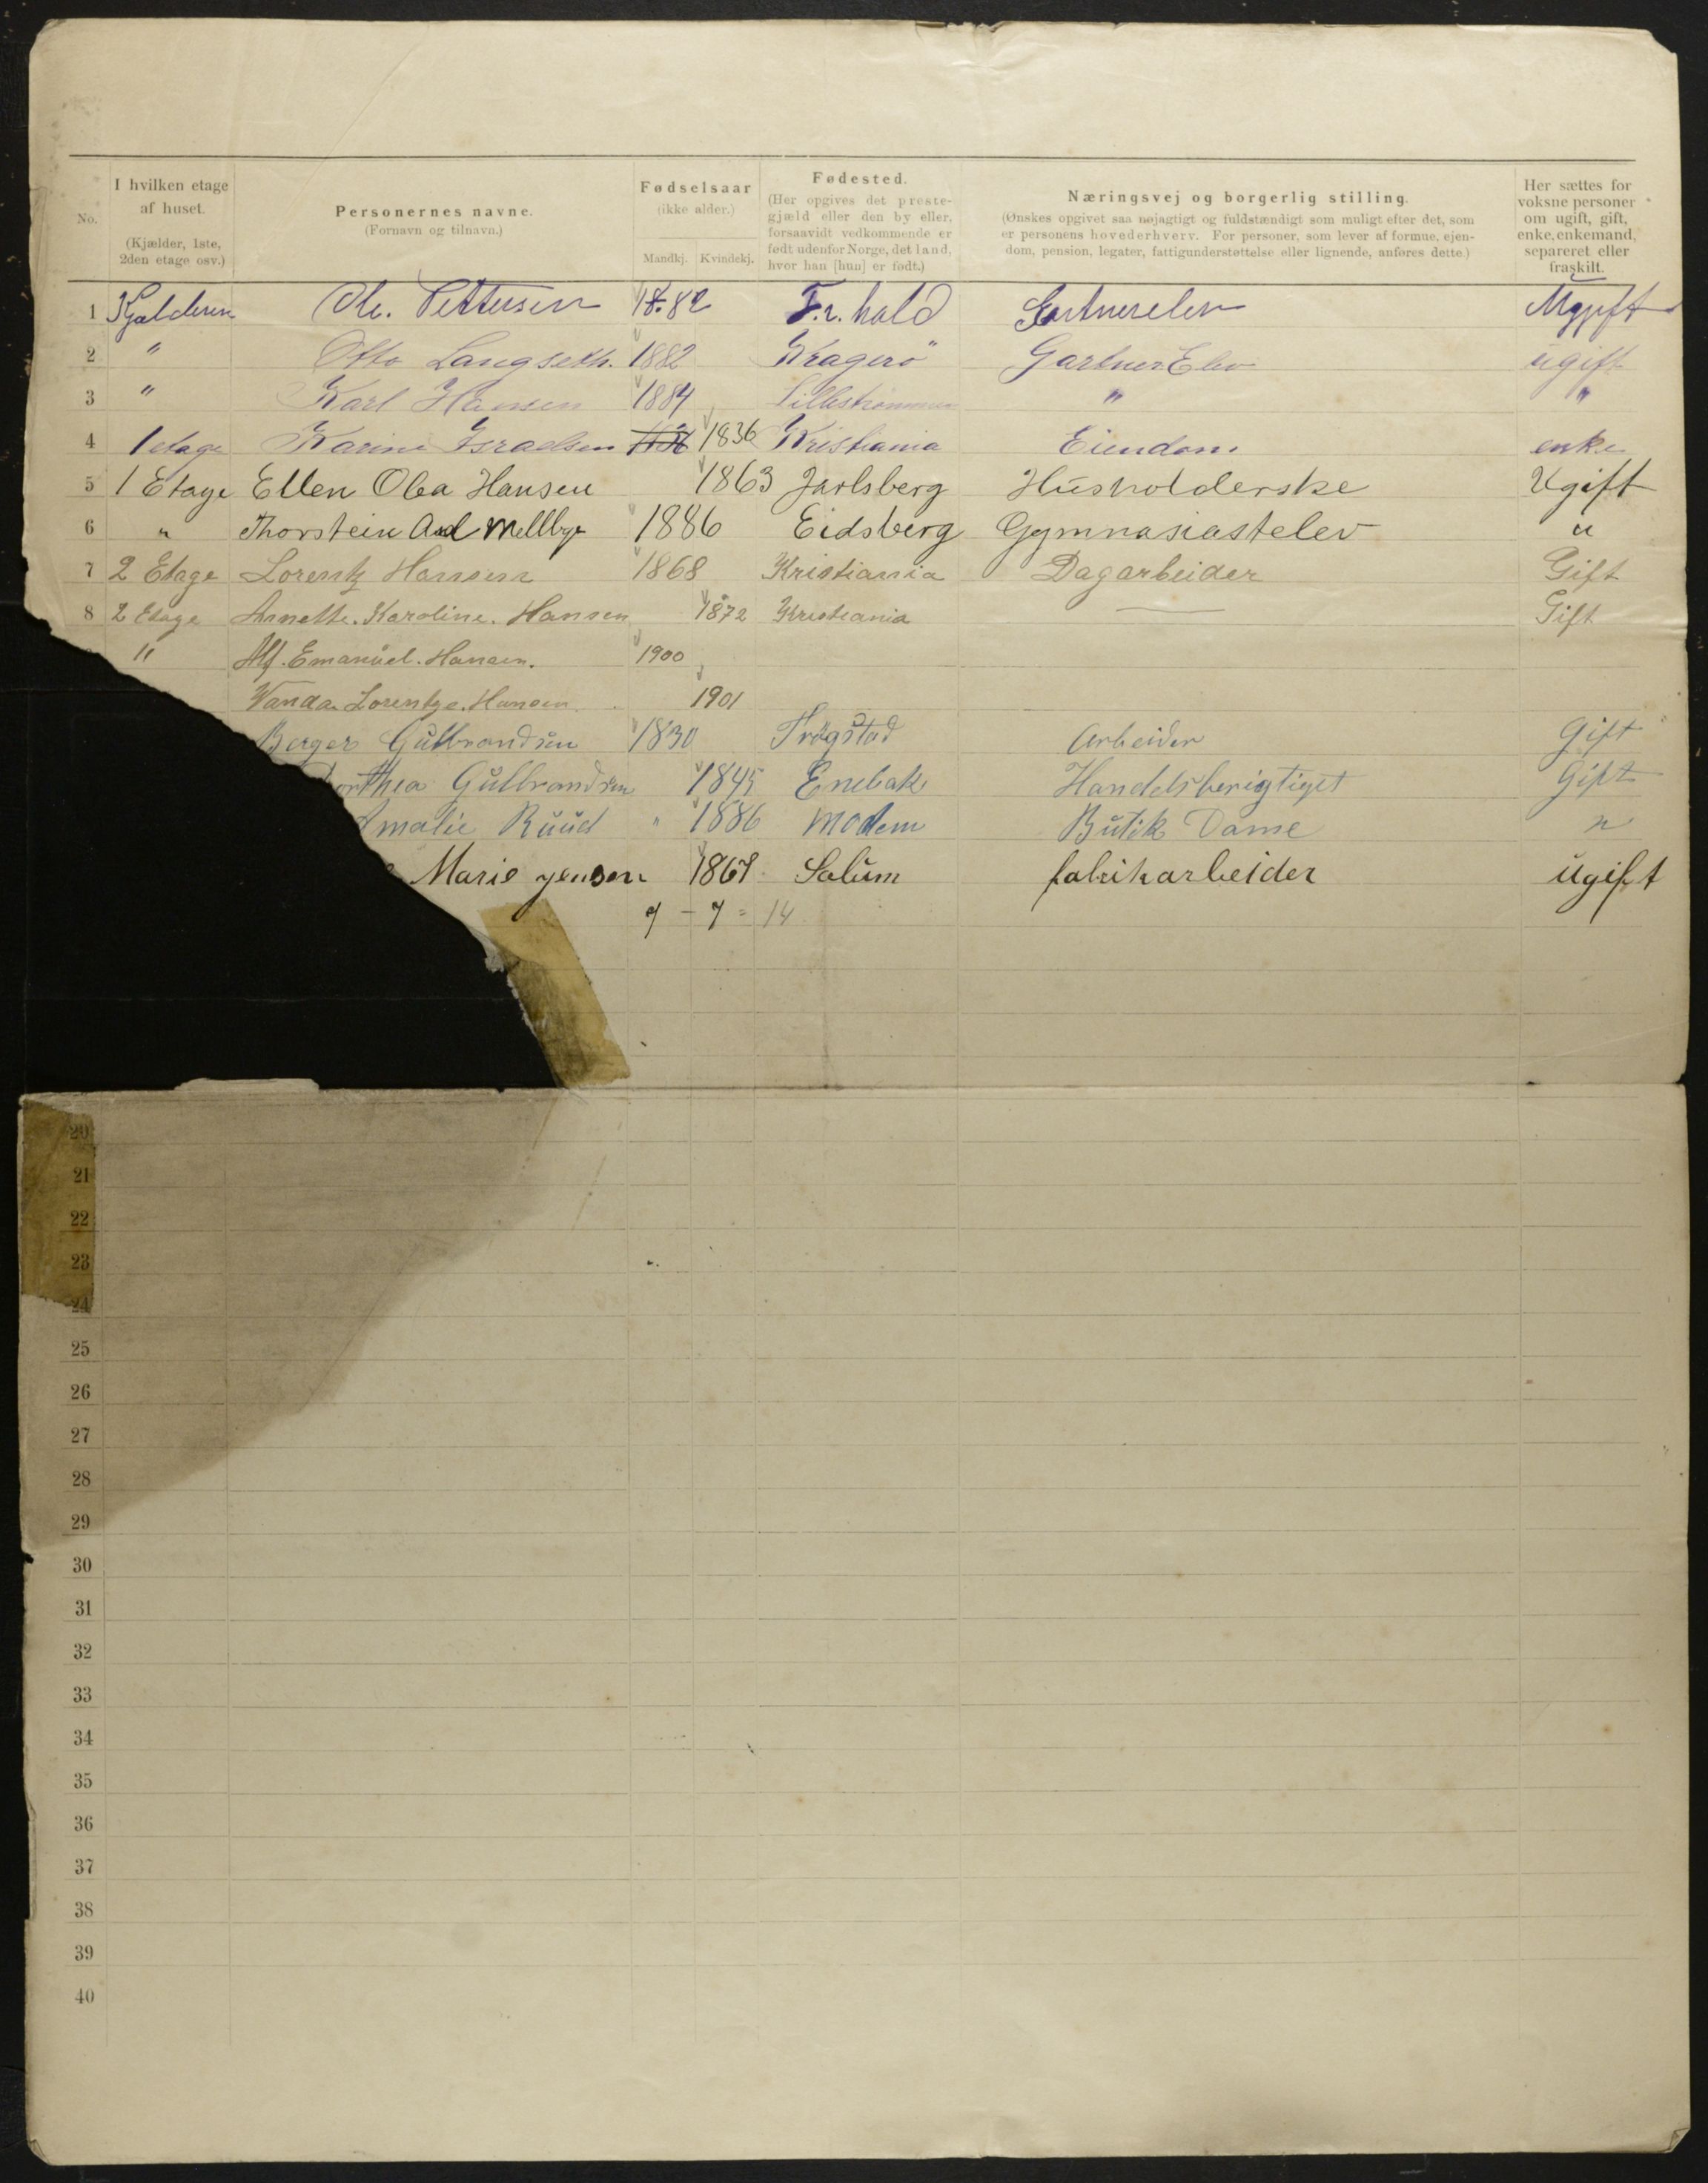 No. | I hvilken etage af huset. (Kjælder, 1ste, 2den etage osv.) | Personernes navne. (Fornavn og tilnavn.) | Fødselsaar (ikke alder.) Mandkj. Kvindekj. | Fødested. (Her opgives det prestegjæld eller den by eller, forsaavidt vedkommende er født udenfor Norge, det land, hvor han [hun] er født.) | Næringsvej og borgerlig stilling. (Ønskes opgivet saa nøjagtigt og fuldstændigt som muligt efter det, som er personens hovederhverv. For personer, som lever af formue, ejendom, pension, legater, fattigunderstøttelse eller lignende, anføres dette.) | Her sættes for voksne personer om ugift, gift, enke, enkemand, separeret eller fraskilt.
1 Kjælderen Ole. Pettersen 1882 Fr. hald Gartnerelev Ugift
2 " Otto Langseth. 1882 Kragerö Gartner Elev ugift
3 " Karl Hansen 1884 Lillestrømmen " "
4 1 etage Karine Israelsen 1836 Kristiania Eiendom enke
5 1 Etage Ellen Olea Hansen 1863 Jarlsberg Husholderske Ugift
6 " Thorstein Axel Mellbye 1886 Eidsberg Gymnasiastelev u
7 2 Etage Lorentz Hansen 1868 Kristiania Dagarbeider Gift
8 2 Etage Annette. Karoline. Hansen 1872 Kristiania — Gift
" Alf. Emanuel. Hansen. 1900
Wanda Lorentze. Hansen. 1901
Berger Gulbrandsen 1830 Trögstad Arbeider Gift
orthea Gulbrandsen 1845 Enebak Handelsberigtiget Gift
malie Ruud " 1886 Modem Butik Dame "
Marie jensen 1867 Solum fabrikarbeider ugift
7 - 7 = 14
20
21
22
23
24
25
26
27
28
29
30
31
32
33
34
35
36
37
38
39
40